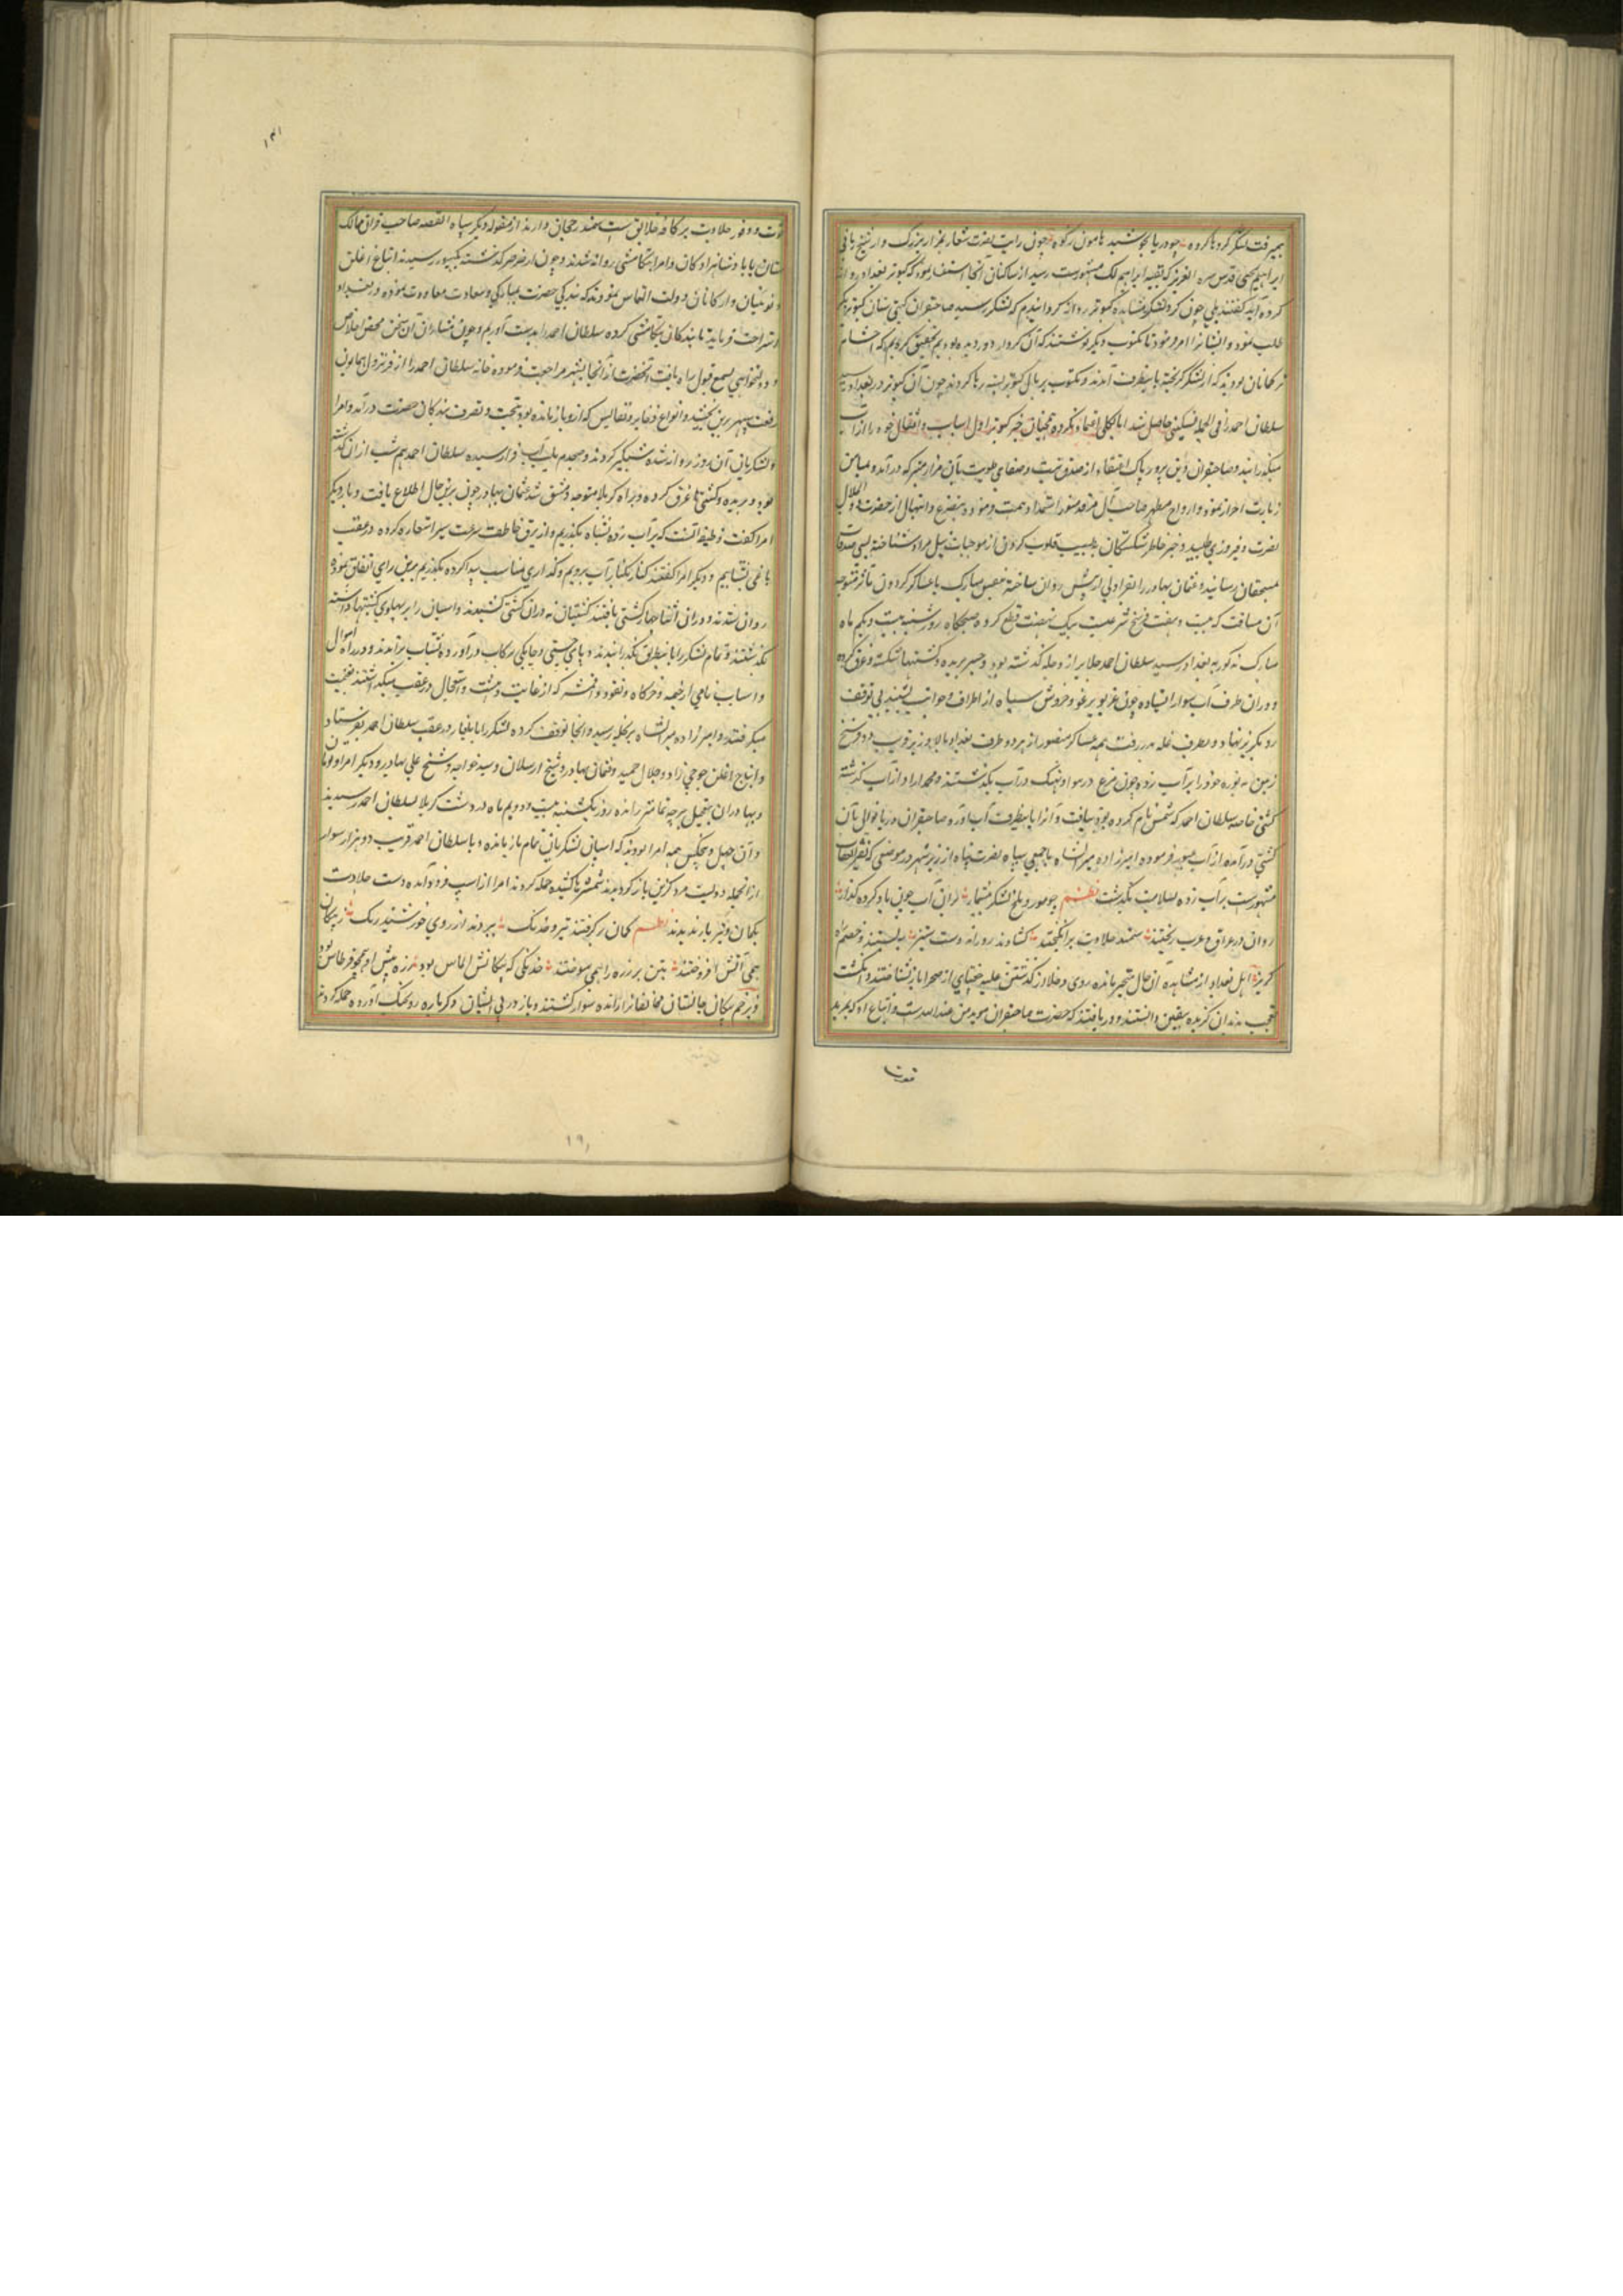 بمیرفت لشکر گروها گروه چو دریا بجوشید هامون و کوه چون رایت نصرت شعار بمزار بزرگوار شیخ
ابراهیم یحیی قدس سره العزیز که بقبه ابراهیم لک مشهورست رسید از ساکنان آنجا استفسار نمود که کبوتر بغداد روانه
کرده‌اید گفتند بلی چون گرد لشکر مشاهده کبوتر روانه گردانیدیم که لشکر رسید صاحبقران گیتی ستان کبوتر دیگر
طلب نمود و ایشانرا امر فرمود تا مکتوب دیگر نوشتند که آن گرد که از دور دیده بودیم تحقیق کردیم که احشام
ترکمانان بودند که از لشکر گریخته باینطرف آمدند و مکتوب بر بال کبوتر بسته رها کردند چون آن کبوتر در بغداد رسید
سلطان احمد را فی الجمله تسکینی حاصل شد اما بکلی اعتماد نکرده همچنان بر خبر کبوتر اول اسباب و اثقال خود را از آب
میگذرانید و صاحبقران دین پرور پاک اعتقاد از صدق نیت و صفای طویت بآن مزار متبرکه درآمد و میامن
زیارت احراز نمود و از ارواح مطهر صاحب آن مرقد منور استمداد همت فرموده بتضرع و ابتهال از حضرت ذوالجلال
نصرت و فیروزی طلبید و جبر خاطر شکستگان و طیب قلوب کردن از موجبات نیل مراد شناخته بسی صدقات
بمستحقان رسانید و عثمان بهادر را بقراولی از پیش روان ساخته بنفس مبارک با عساکر گردون مآثر متوجه
آن مسافت که بیست و هفت فرسخ شرعیست بیک نهضت قطع کرده صبحگاه روز شنبه بیست و یکم ماه
مبارک مذکور ببغداد رسید سلطان احمد جلایر از دجله گذشته بود و جسر بریده و کشتیها شکسته و غرق کرده
و در آن طرف آب سوار ایستاده چون غریو برغو و خروش سپاه از اطراف و جوانب بشنید بی توقف
رو بگریز نهاد و بطرف حله بدر رفت همه عساکر منصور از هر دو طرف بغداد بالا و زیر قریب دو فرسخ
زمین بتوره خود را بر آب زده چون مرغ در هوا و نهنگ در آب بگذشتند و محمد آزاد از آب گذشته
کشتی خاصه سلطان احمد که شمس نام کرده بود بیافت و آنرا باینطرف آب آورد صاحبقران دریا نوال بآن
کشتی درآمده از آب عبور فرموده امیرزاده میرانشاه با جمعی سپاه نصرت پناه از زیر شهر در موضعی که بقریة العقاب
مشهورست بر آب زده بسلامت بگذشت نظم چو مور و ملخ لشکر بیشمار از آن آب چون باد کرده گذار
روان در عراق عرب ریختند سمند جلادت برانگیختند گشادند روزانه دست ستیز ببستند و خصم راه
گریز اهل بغداد از مشاهده آن حال متحیر بمانده روی دجله را از گذشتن غلبه جغتای از صحرا باز نشناختند و انگشت
تعجب بدندان گزیده یقین دانستند و دریافتند که حضرت صاحبقران موید من عند الله است و اتباع او که بمزید
قوت
قوت و وفور جلادت بر کافه خلایق سمت رجحان دارند از مقوله دیگر سپاه القصه صاحب قران ممالک
ستان با پادشاهزادگان و امرا بتکامشی روانه شدند و چون از صرصر گذشته بکبیور رسیدند ایباج اغلن
و نوئینان و ارکان دولت التماس نمودند که بندگی حضرت بمبارکی و سعادت معاودت نموده در بغداد
استراحت فرماید تا بندگان تکامشی کرده سلطان احمد را بدست آوریم و چون منشاء آن سخن محض اخلاص
و دولتخواهی بسمع قبول راه یافت و آنحضرت از آنجا بشهر مراجعت فرموده خانه سلطان احمد را از فر نزول همایون
رفعت سپهر برین بخشید و انواع ذخایر و نفایس که از و باز مانده بود تحت و تصرف بندگان حضرت درآمد و امرا
و لشکریان آن روز روانه شده شبگیر کردند و صبحدم بلب آب فرات رسیدند سلطان احمد هم شب از آن گذشته
بود و جسر بریده و کشتی‌ها غرق کرده و براه کربلا متوجه دمشق شد عثمان بهادر چون برین حال اطلاع یافت و با دیگر
امرا گفت وظیفه آنست که بر آب زده بشناه بگذریم و از برق خاطف سرعت سیر استعاره کرده در عقب
یاغی بشتابیم و دیگر امرا گفتند کنار بکنار آب برویم و گذاری مناسب پیدا کرده بگذریم برین رای اتفاق نموده
روان شدند و در آن اثنا چهار کشتی یافتند کشتیان نه در آن کشتی نشستند و اسپان را بر پهلوی کشتیها داشته
بگذشتند و تمام لشکر را باینطریق بگذرانیدند و پای چستی و چابکی در رکاب درآورده بشتاب براندند و در راه اموال
و اسباب نامی از خیمه و خرگاه و نقود و اقمشه که از غایت دهشت و استعجال در عقب میگذاشتند بغنیمت
میگرفتند و امیرزاده میرانشاه بحله رسید و آنجا توقف کرده لشکر را بایلغار در عقب سلطان احمد بفرستاد
و ایباج اغلن جوجی نژاد و جلال حمید و عثمان بهادر و شیخ ارسلان و سید خواجه و شیخ علی بهادر و دیگر امرا و نوئینان
و بهادران بتعجیل هر چه تمامتر رانده روز یکشنبه بیست و دویم ماه در دشت کربلا بسلطان احمد رسیدند
و آن چهل و پنج کس همه امرا بودند که اسپان لشکریان تمام باز مانده و با سلطان احمد قریب دو هزار سوار
از آنجمله دویست مرد گزین باز گردیدند شمشیرها کشیده حمله کردند امرا از اسپ فرود آمده دست جلادت
بکمان و تیر یازیدند نظم کمان برگرفتند تیر و خدنگ ببردند از روی خورشید رنگ ز پیکان
همی آتش افروختند بتن بر زره را همی سوختند خدنگی که پیکانش الماس بود زره پیش او همچو قرطاس بود
و بزخم پیکان جانستان مخالفان را رانده سوار گشتند و باز در پی ایشان دگر باره رو بجنگ آورده حمله کردند